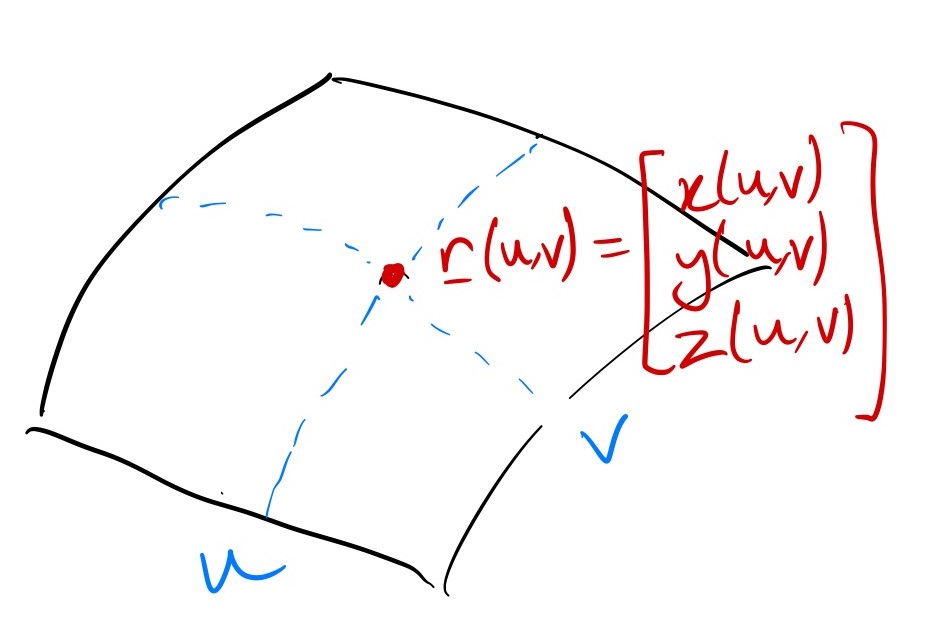 r(u,v) = [x(u,v)
y(u,v)
z(u,v)]
v
u